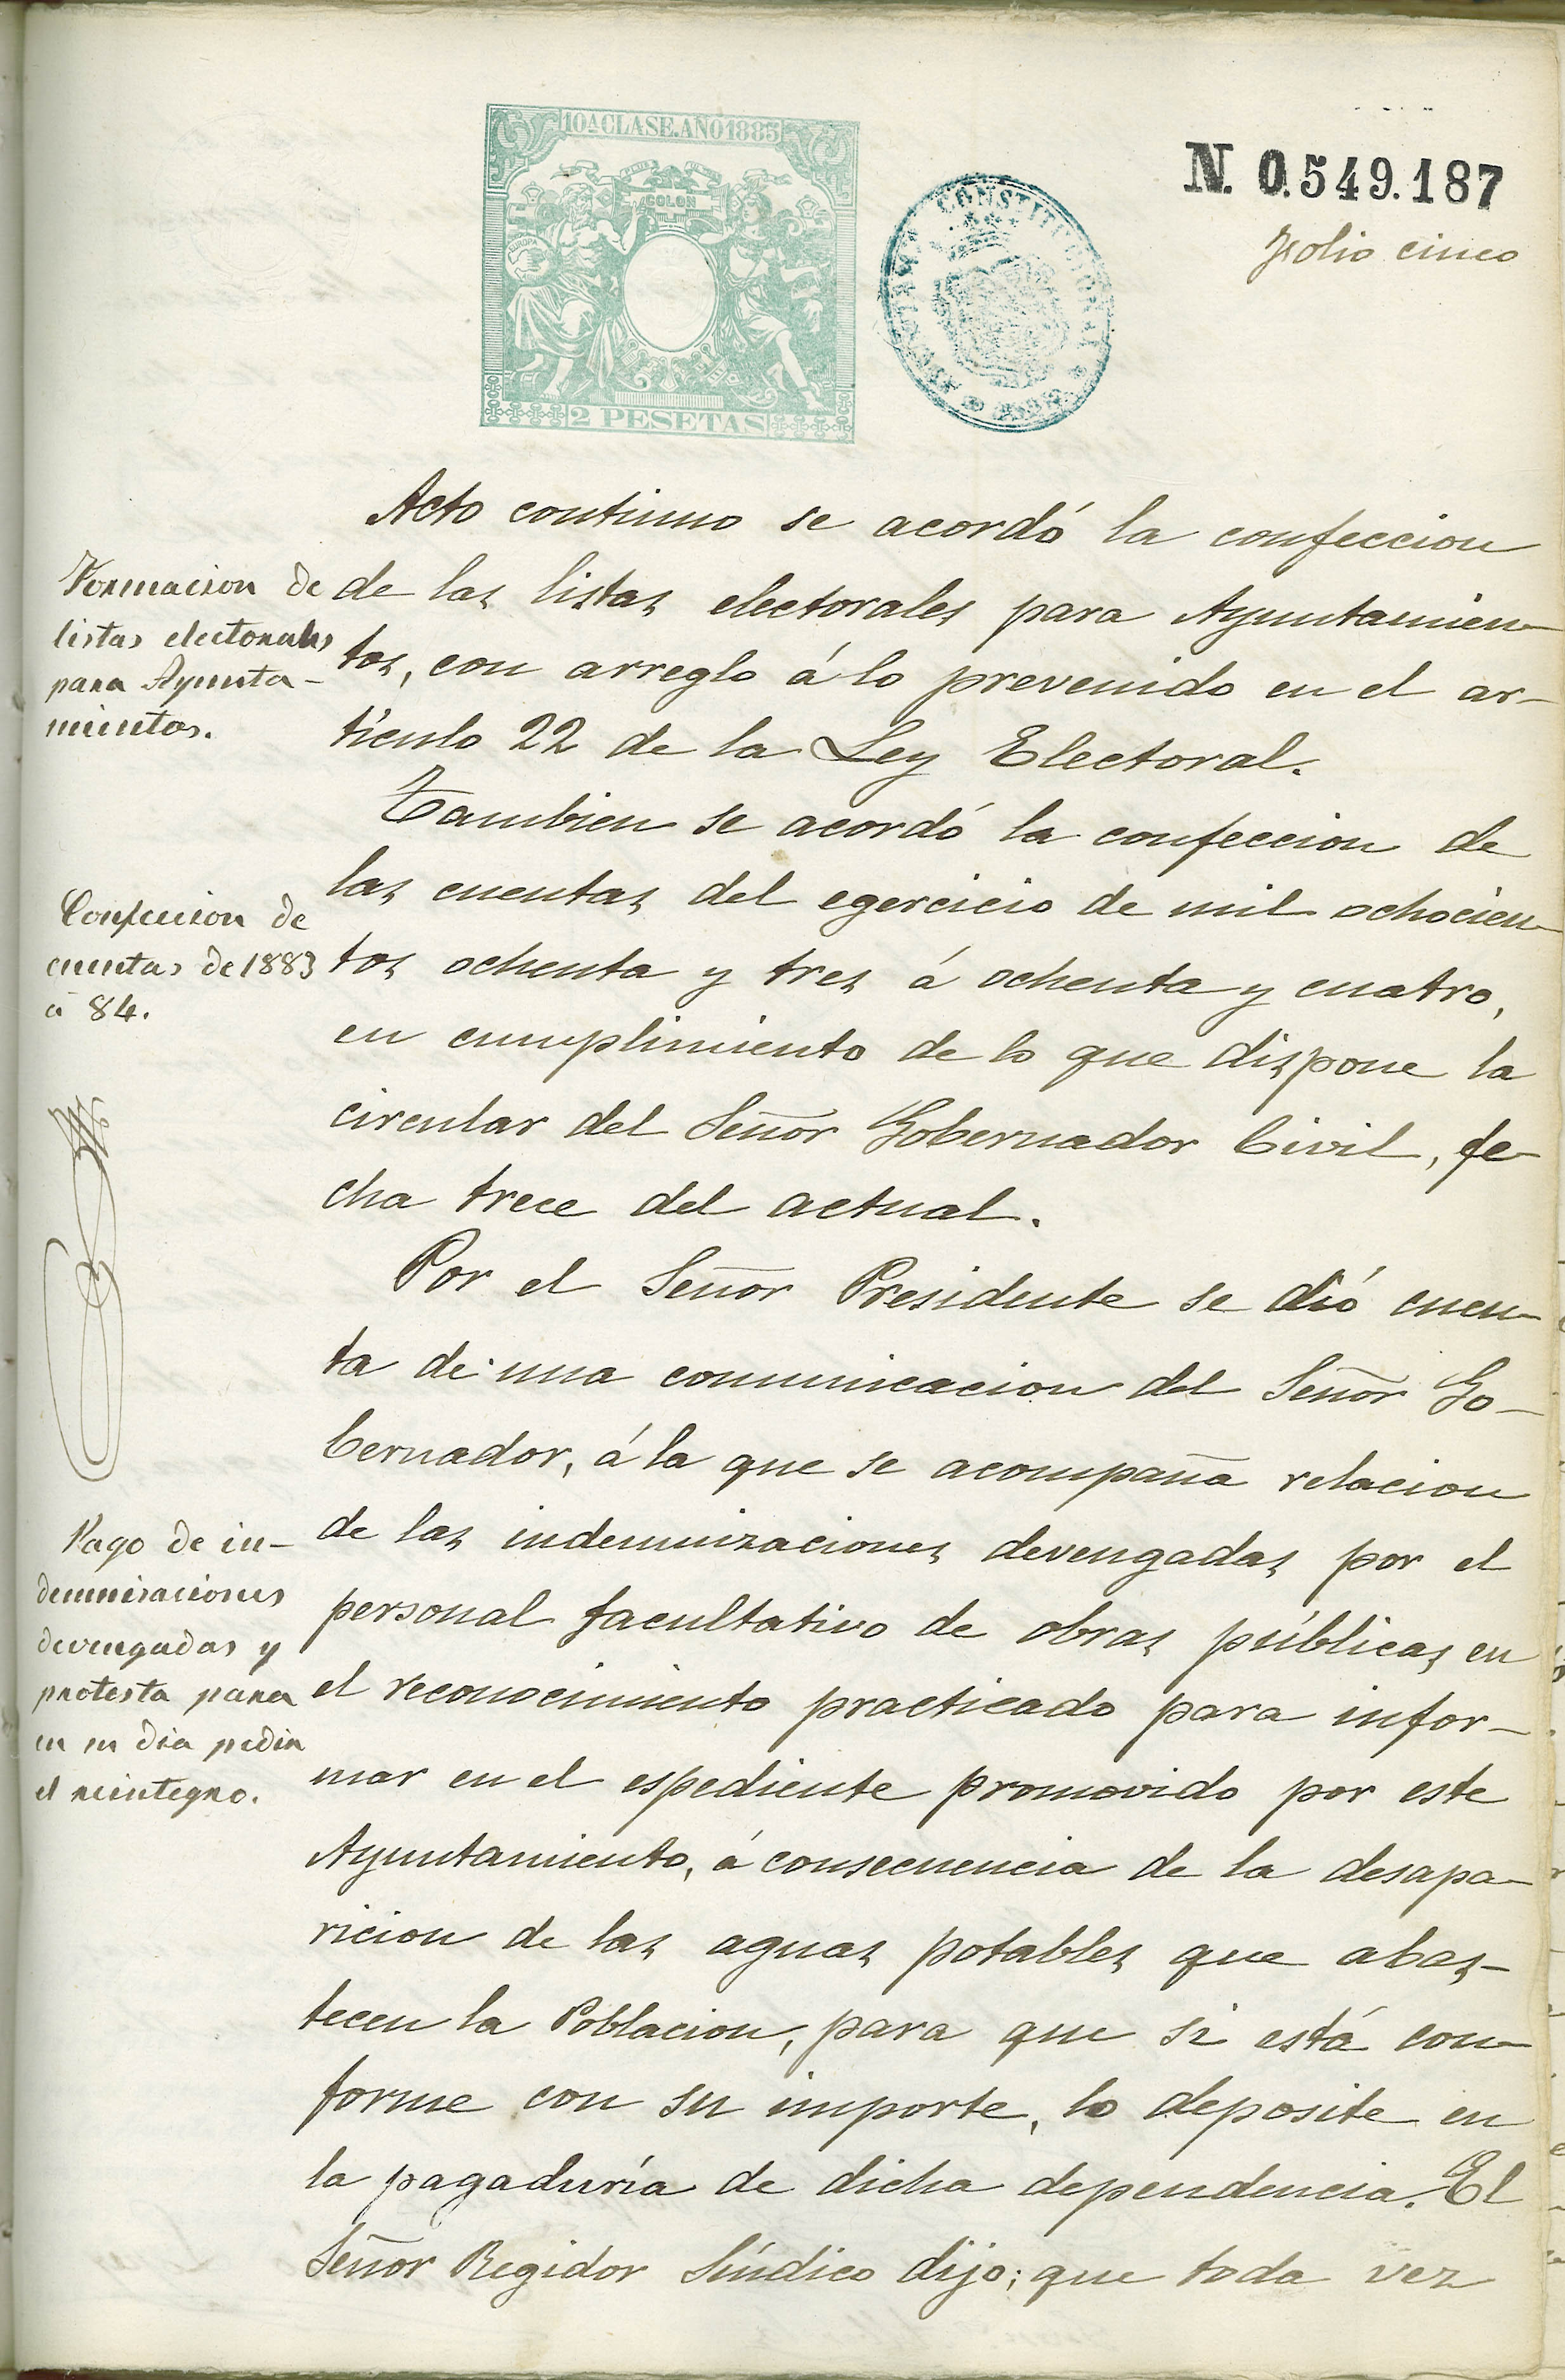 10ª CLASE. AÑO 1885
COLON
EUROPA
2 PESETAS
CONSTITUCIONAL
N. 0.549.187
Folio cinco
Acto continuo se acordó la confeccion
de las listas electorales para Ayuntamien-
tos, con arreglo á lo prevenido en el ar-
tículo 22 de la Ley Electoral.
Formacion de
listas electorales
para Ayunta-
mientos.
Tambien se acordó la confeccion de
las cuentas del egercicio de mil ochocien-
tos ochenta y tres á ochenta y cuatro,
en cumplimiento de lo que dispone la
circular del Señor Gobernador Civil, fe-
cha trece del actual.
Confeccion de
cuentas de 1883
á 84.
Por el Señor Presidente se dió cuen-
ta de una comunicacion del Señor Go-
bernador, á la que se acompaña relacion
de las indemnizaciones devengadas por el
personal facultativo de obras públicas en
el reconocimiento practicado para infor-
mar en el espediente promovido por este
Ayuntamiento, á consecuencia de la desapa-
ricion de las aguas potables que abas-
tecen la Poblacion, para que si está con-
forme con su importe, lo deposite en
la pagaduría de dicha dependencia. El
Señor Regidor Síndico dijo; que toda vez
Pago de in-
demnizaciones
devengadas y
protesta para
en su dia pedir
el reintegro.